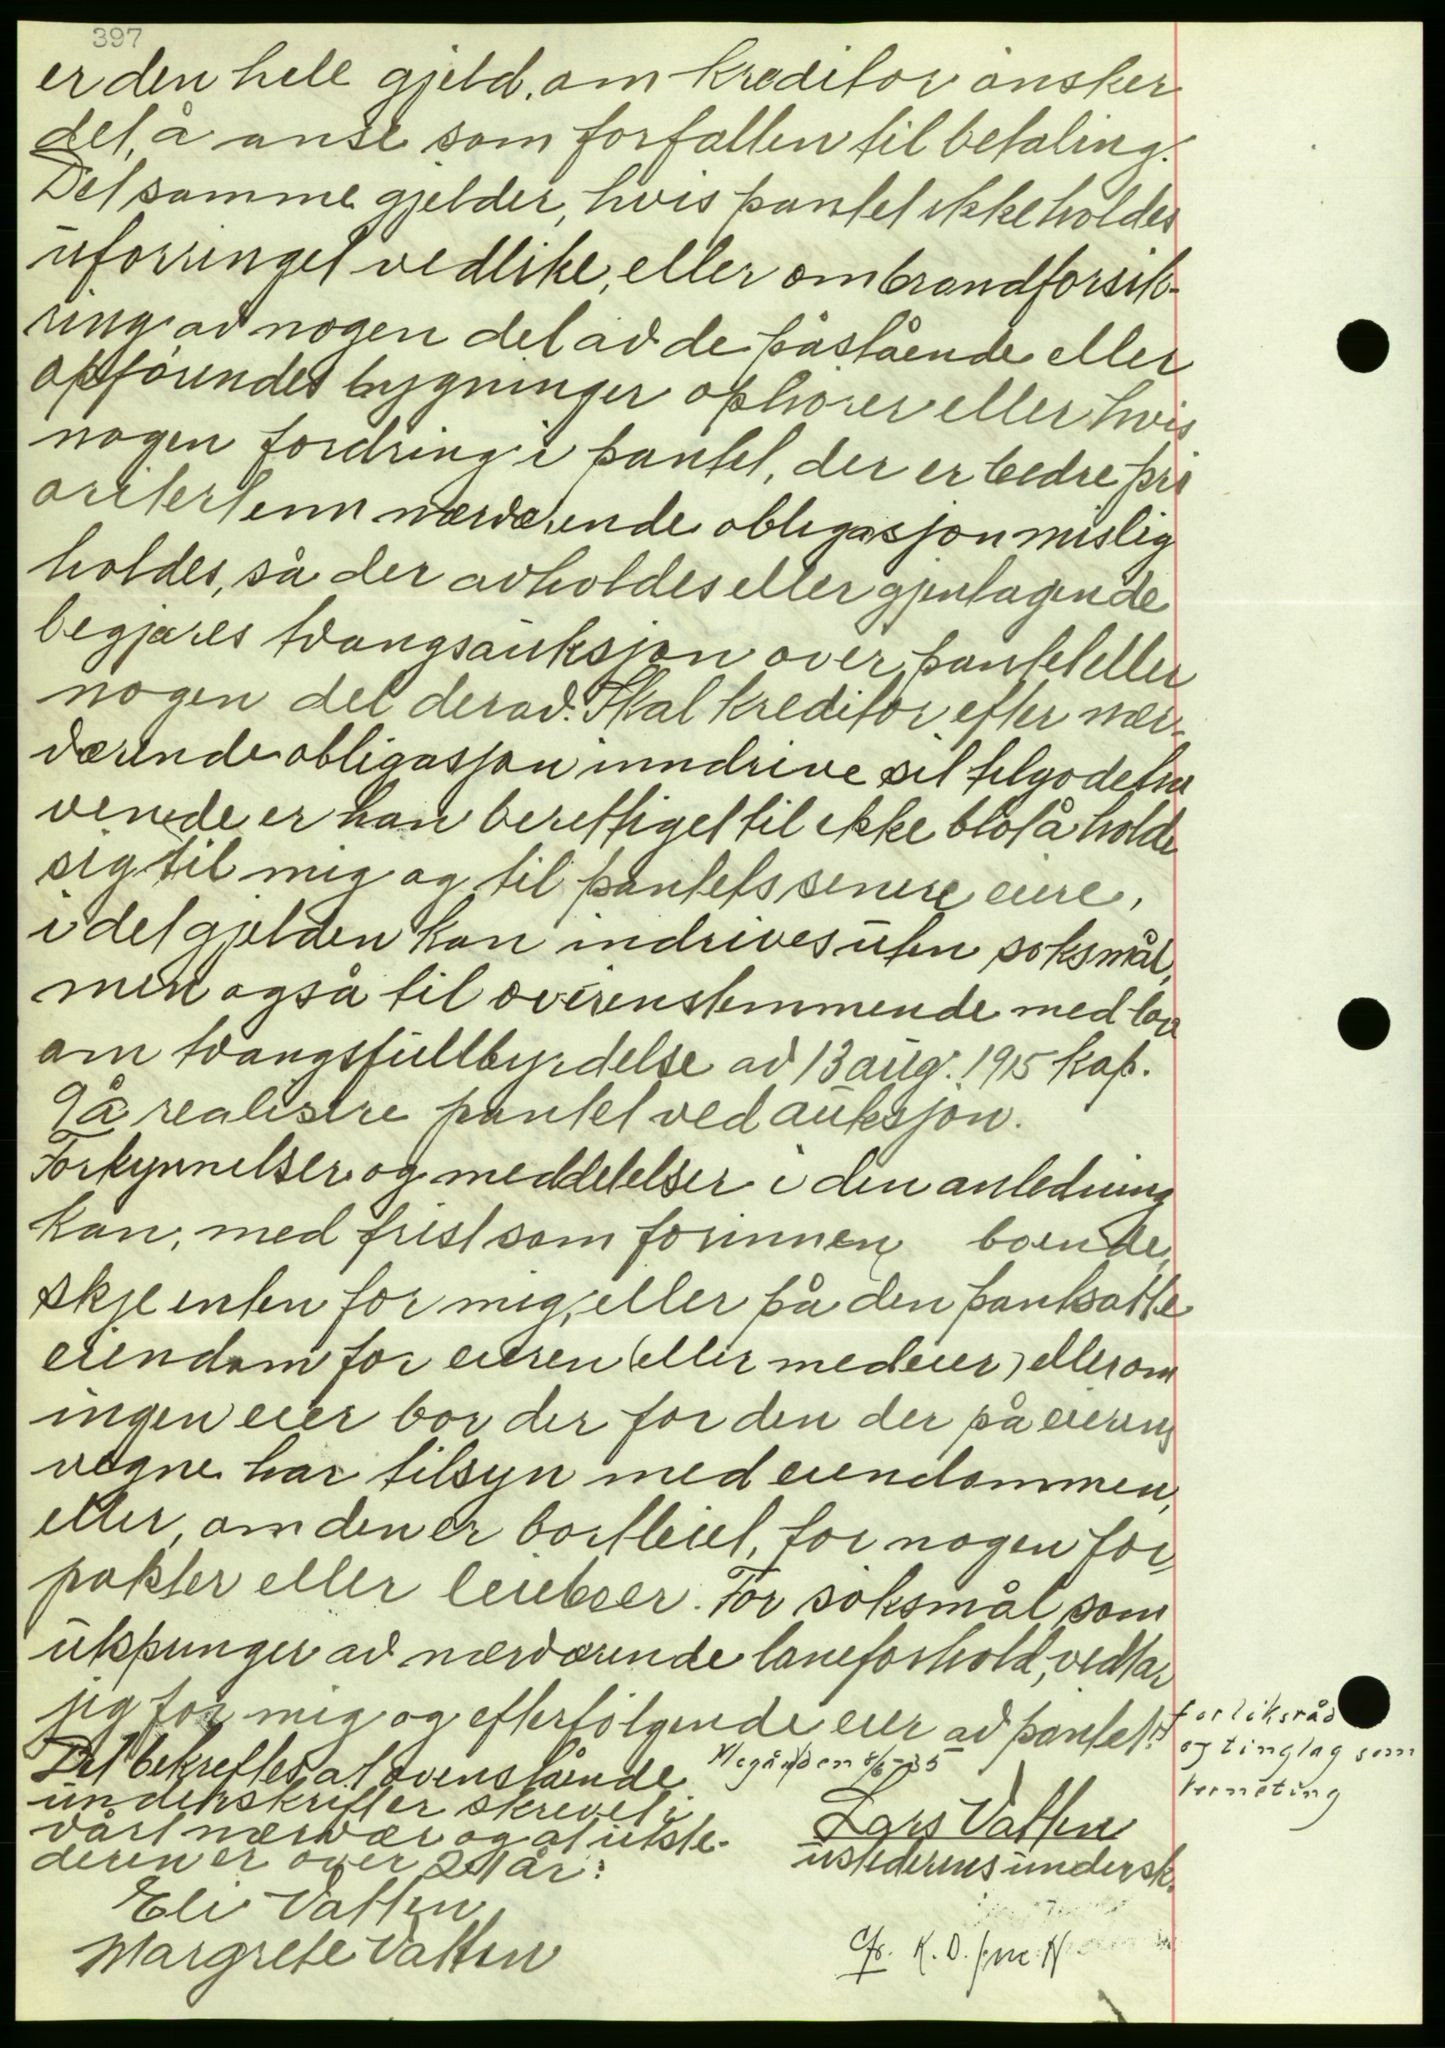 397
er den hele gjeld, om kreditor ønsker
det, å anse som forfallen til betaling.
Det samme gjelder, hvis pantet ikke holdes
uforringet vedlike, eller om brandforsik-
ring av nogen del av de påstående eller
opførendes bygninger ophører eller hvis
nogen fordring i pantet, der er bedre pri
oritert enn nærværende obligasjon mislig
holdes, så der avholdes eller gjentagende
begjæres tvangsauksjon over pantet eller
nogen del derav. Skal kreditor efter nær-
værende obligasjon inndrive sit tilgodeha
vende er han berettiget til ikke blot å holde
sig til mig og til pantets senere eiere,
i det gjelden kan indrives uten søksmål,
men også til overenstemmende med lov
om tvangsfullbyrdelse av 13 aug. 1915 kap.
9 å realisere pantet ved auksjon.
Forkynnelser og meddelelser i den anledning
kan, med frist som for innen boende,
skje enten for mig, eller på den pantsatte
eiendom for eieren (eller medeier) eller om
ingen eier bor der for den der på eierens
vegne har tilsyn med eiendommen,
eller, om den er bortleiet, for nogen for-
pakter eller leieboer. For søksmål som
utspringer av nærværende låneforhold, vedtar
jeg for mig og efterfølgende eier av pantet: forliksråd
og tinglag som
verneting
Det bekreftes at ovenstående
underskrifter skrevet i
vårt nærvær og at utste-
deren er over 21 år:
Eli Vatten
Margrete Vatten
den 8/6-35
Lars Vatten
ustederens undersk.
K. O.